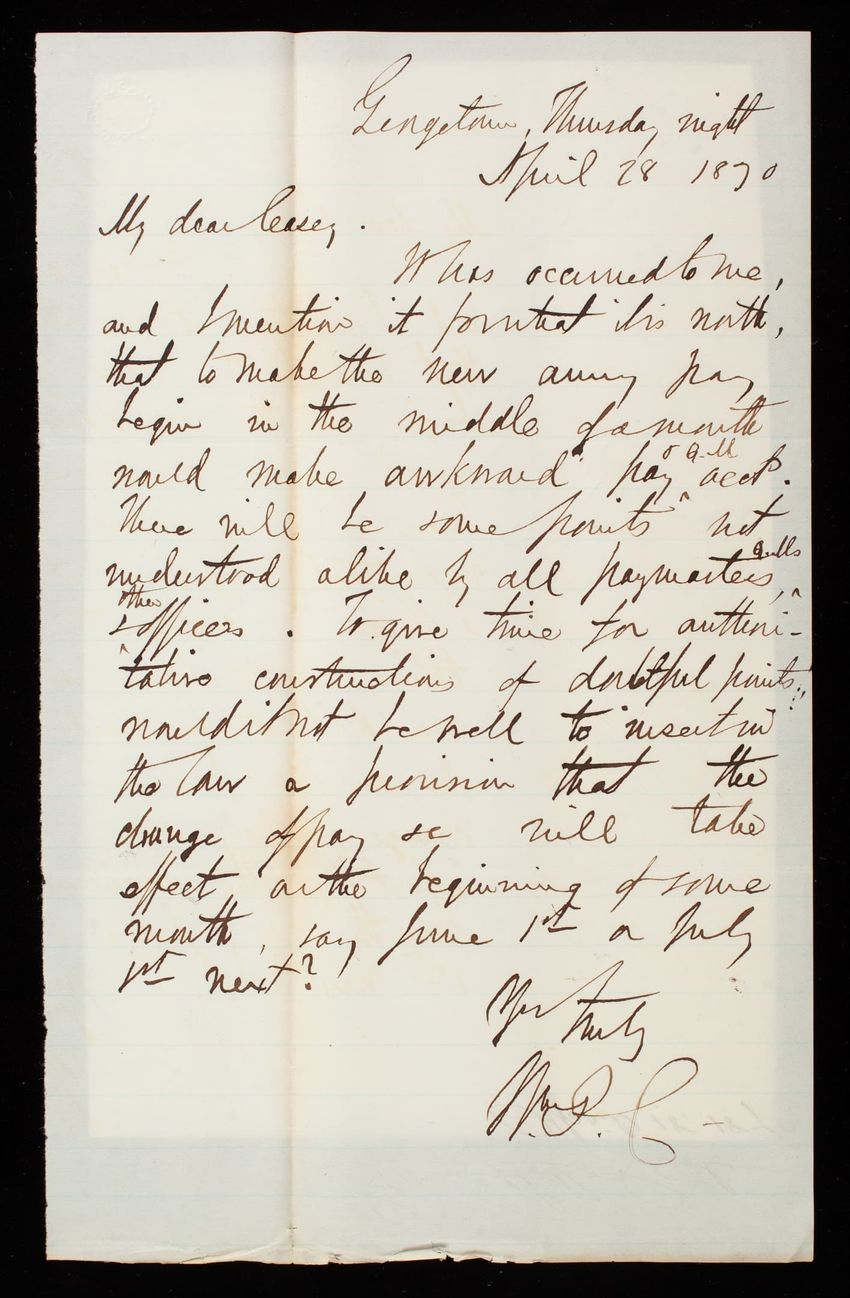 Georgetown, Thursday night
April 28 1870
My dear Casey.
It has occurred to me,
and I mention it for what it is worth,
that to make the new army pay
begin in the middle of a month
would make awkward pay & q.M accts.
There will be some points not
understood alike by all paymasters, q.Ms
& other officers. To give time for authori-
tative constructions of doubtful points,
would it not be well to insert in
the law a provision that the
change of pay &c will take
effect at the beginning of some
month, say June 1st or July
1st next?
Yrs truly
Wm. P. C